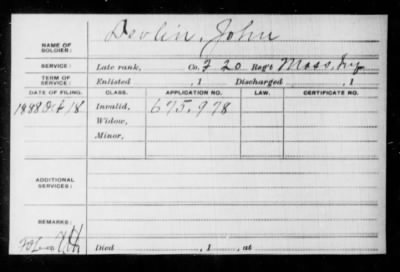 Devlin, John
NAME OF SOLDIER:
SERVICE: Late rank, Co. F 20 Reg't Mass. Inf
TERM OF SERVICE: Enlisted , 1 Discharged , 1
DATE OF FILING. CLASS. APPLICATION NO. LAW. CERTIFICATE NO.
1888 Oct 18 Invalid, 675.978
Widow,
Minor,
ADDITIONAL SERVICES:
REMARKS:
Died , 1 , at